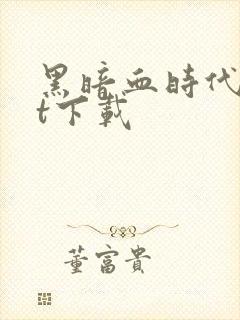 黑暗血時代
t下載
董富貴